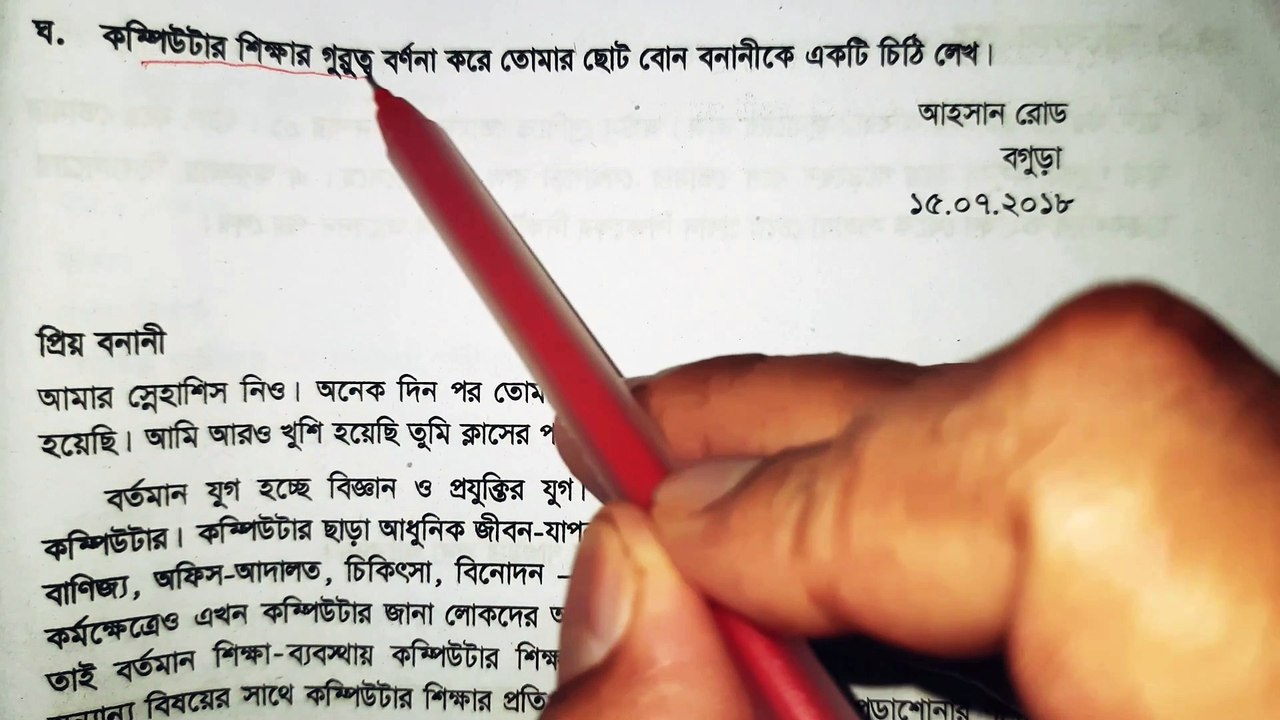 ঘ. কম্পিউটার শিক্ষার গুরুত্ব বর্ণনা করে তোমার ছোট বোন বনানীকে একটি চিঠি লেখ।
আহসান রোড
বগুড়া
১৫.০৭.২০১৮
প্রিয় বনানী
আমার স্নেহাশিস নিও। অনেক দিন পর
হয়েছি। আমি আরও খুশি হয়েছি তুমি ক্লাসের
বর্তমান যুগ হচ্ছে বিজ্ঞান ও প্রযুক্তির যুগ।
কম্পিউটার। কম্পিউটার ছাড়া আধুনিক
বাণিজ্য, অফিস-আদালত, চিকিৎসা, বিনোদন –
কর্মক্ষেত্রেও এখন কম্পিউটার জানা লোকদের
তাই বর্তমান শিক্ষা-ব্যবস্থায় কম্পিউটার
বিষয়ের সাথে কম্পিউটার শিক্ষার